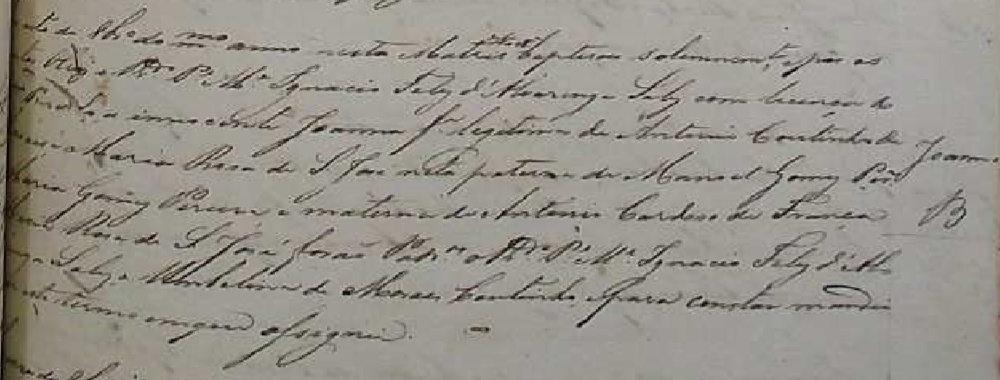 de 8br.o do mmo anno nesta Matriz baptisou solemnem.te e pôs os
Oleos o Rdo Pe Me Ignacio Felz d'Alvarenga Salz com licença do
Paroco a innocente Joanna fa legitima de Antonio Coutinho de Joanna
Maria Rosa de S José neta paterna de Manoel Gomes
Maria Gomes Pereira e materna de Antonio Cardoso de França B
Rosa de S José forão Padros o Rdo Pe Me Ignacio Felz d'Alva
Salz e Umbelina de Moraes Coutinho e para constar mandei
este termo em que assignei.